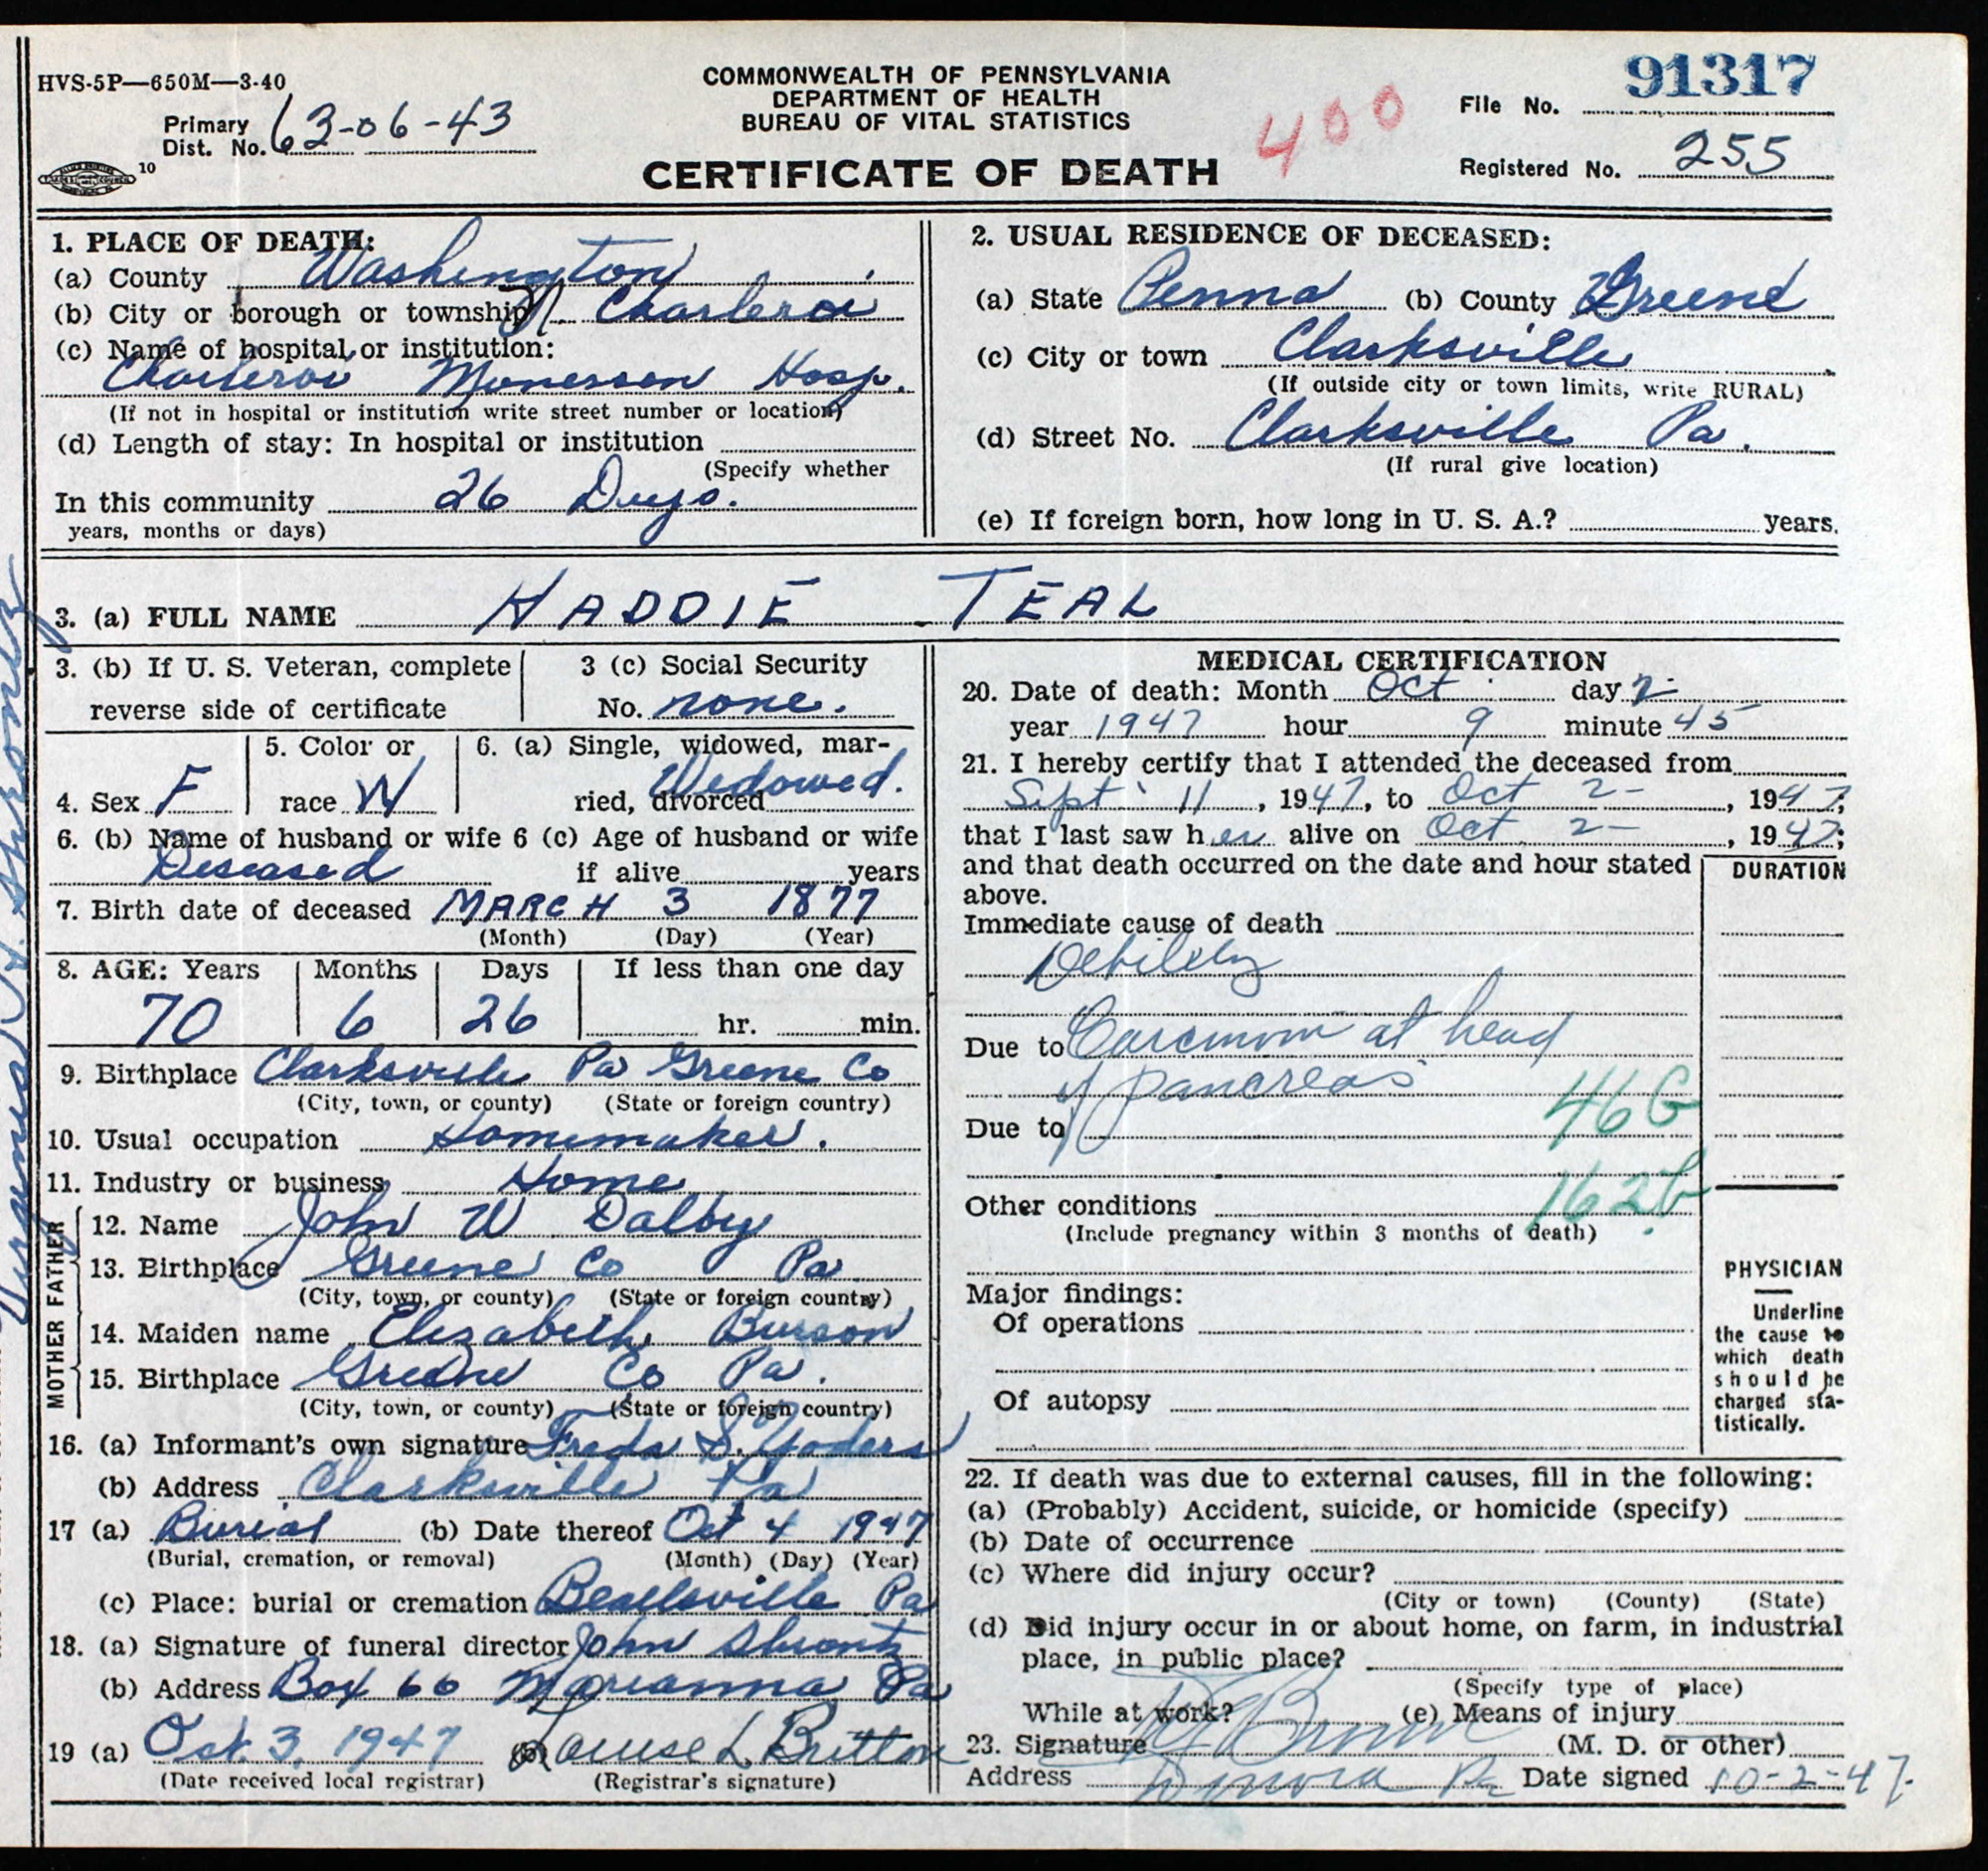 HVS-5P—650M—3-40
COMMONWEALTH OF PENNSYLVANIA
DEPARTMENT OF HEALTH
BUREAU OF VITAL STATISTICS
CERTIFICATE OF DEATH
Primary Dist. No. 63-06-43
10
400
File No. 91317
Registered No. 255
1. PLACE OF DEATH:
(a) County Washington
(b) City or borough or township N. Charleroi
(c) Name of hospital or institution:
Charleroi Monessen Hosp.
(If not in hospital or institution write street number or location)
(d) Length of stay: In hospital or institution
(Specify whether
In this community 26 Days.
years, months or days)
2. USUAL RESIDENCE OF DECEASED:
(a) State Penna (b) County Greene
(c) City or town Clarksville
(If outside city or town limits, write RURAL)
(d) Street No. Clarksville Pa.
(If rural give location)
(e) If foreign born, how long in U. S. A.? years.
3. (a) FULL NAME HADDIE TEAL
3. (b) If U. S. Veteran, complete
reverse side of certificate
3 (c) Social Security
No. none.
4. Sex F
5. Color or
race W
6. (a) Single, widowed, mar-
ried, divorced Widowed.
6. (b) Name of husband or wife
Deseased
6 (c) Age of husband or wife
if alive years
7. Birth date of deceased MARCH 3 1877
(Month) (Day) (Year)
8. AGE: Years Months Days If less than one day
70 6 26 hr. min.
9. Birthplace Clarksville Pa Greene Co
(City, town, or county) (State or foreign country)
10. Usual occupation Homemaker.
11. Industry or business Home
FATHER
12. Name John W Dalby
13. Birthplace Greene Co Pa
(City, town, or county) (State or foreign country)
MOTHER
14. Maiden name Elizabeth Burson
15. Birthplace Greene Co Pa.
(City, town, or county) (State or foreign country)
16. (a) Informant's own signature Freda S. Yoders
(b) Address Clarksville Pa
17 (a) Burial (b) Date thereof Oct 4 1947
(Burial, cremation, or removal) (Month) (Day) (Year)
(c) Place: burial or cremation Beallsville Pa
18. (a) Signature of funeral director John Shrontz
(b) Address Box 66 Marianna Pa
19 (a) Oct. 3, 1947 (b) Louise L Britton
(Date received local registrar) (Registrar's signature)
MEDICAL CERTIFICATION
20. Date of death: Month Oct day 2
year 1947 hour 9 minute 45
21. I hereby certify that I attended the deceased from
Sept 11, 1947, to Oct 2-, 1947;
that I last saw her alive on Oct 2-, 1947;
and that death occurred on the date and hour stated
above.
DURATION
Immediate cause of death
Debility
Due to Carcinom at head
of pancreas
46G
Due to
162b
Other conditions
(Include pregnancy within 3 months of death)
Major findings:
Of operations
Of autopsy
PHYSICIAN
Underline
the cause to
which death
should be
charged sta-
tistically.
22. If death was due to external causes, fill in the following:
(a) (Probably) Accident, suicide, or homicide (specify)
(b) Date of occurrence
(c) Where did injury occur?
(City or town) (County) (State)
(d) Did injury occur in or about home, on farm, in industrial
place, in public place?
(Specify type of place)
While at work? (e) Means of injury
23. Signature (M. D. or other)
Address Donora Pa Date signed 10-2-47.